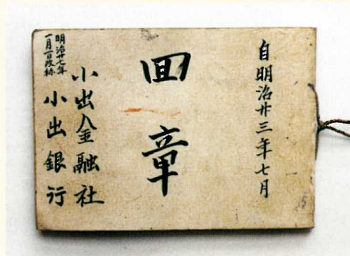 自明治廿三年七月
回章
小出金融社
小出銀行
明治廿七年
一月一日改称